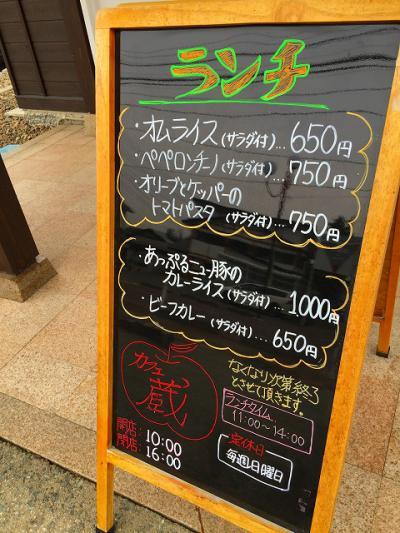 ランチ
・オムライス(サラダ付)…650円
・ペペロンチーノ(サラダ付)…750円
・オリーブとケッパーの
トマトパスタ(サラダ付)…750円
・あっぷるニュー豚の
カレーライス(サラダ付)…1000円
・ビーフカレー(サラダ付)…650円
カフェ
蔵
開店:10:00
閉店:16:00
なくなり次第終了
とさせて頂きます。
ランチタイム
11:00~14:00
定休日
毎週日曜日